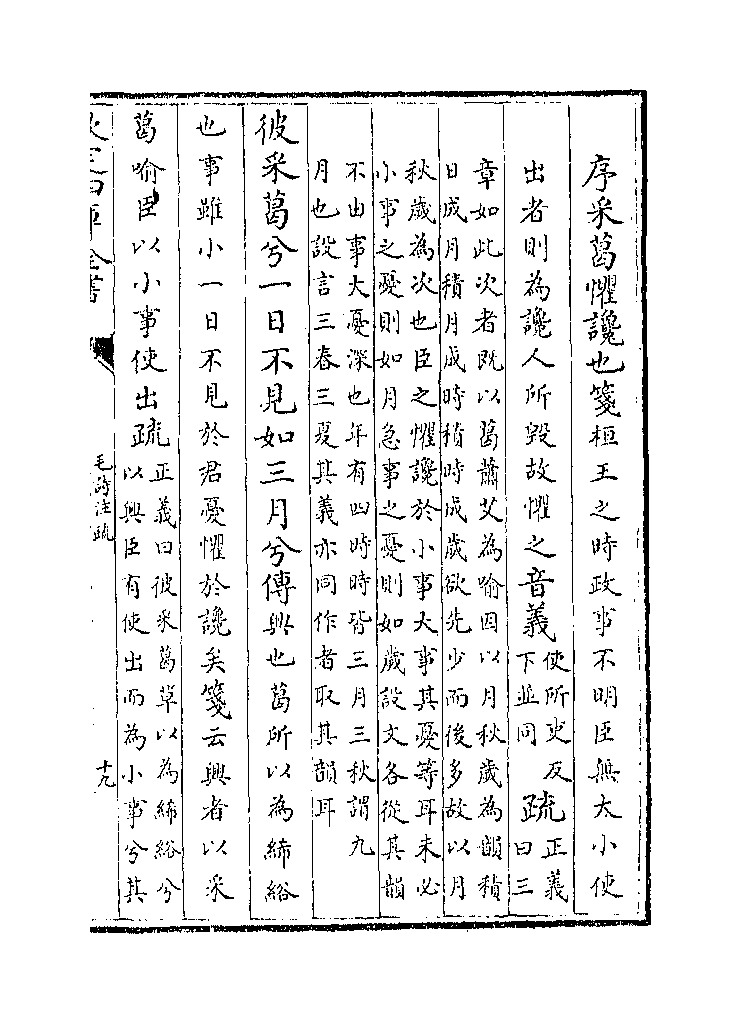 序采葛懼讒也箋桓王之時政事不明臣無大小使
出者則為讒人所毀故懼之音義使所吏反
下並同
疏正義
曰三
章如此次者既以葛蕭艾為喻因以月秋歲為韻積
日成月積月成時積時成歲欲先少而後多故以月
秋歲為次也臣之懼讒於小事大事其憂等耳未必
小事之憂則如月急事之憂則如歲設文各從其韻
不由事大憂深也年有四時時皆三月三秋謂九
月也設言三春三夏其義亦同作者取其韻耳
彼采葛兮一日不見如三月兮傳興也葛所以為絺綌
也事雖小一日不見於君憂懼於讒矣箋云興者以采
葛喻臣以小事使出疏正義曰彼采葛草以為絺綌兮
以興臣有使出而為小事兮其
欽定四庫全書
毛詩注疏
十九